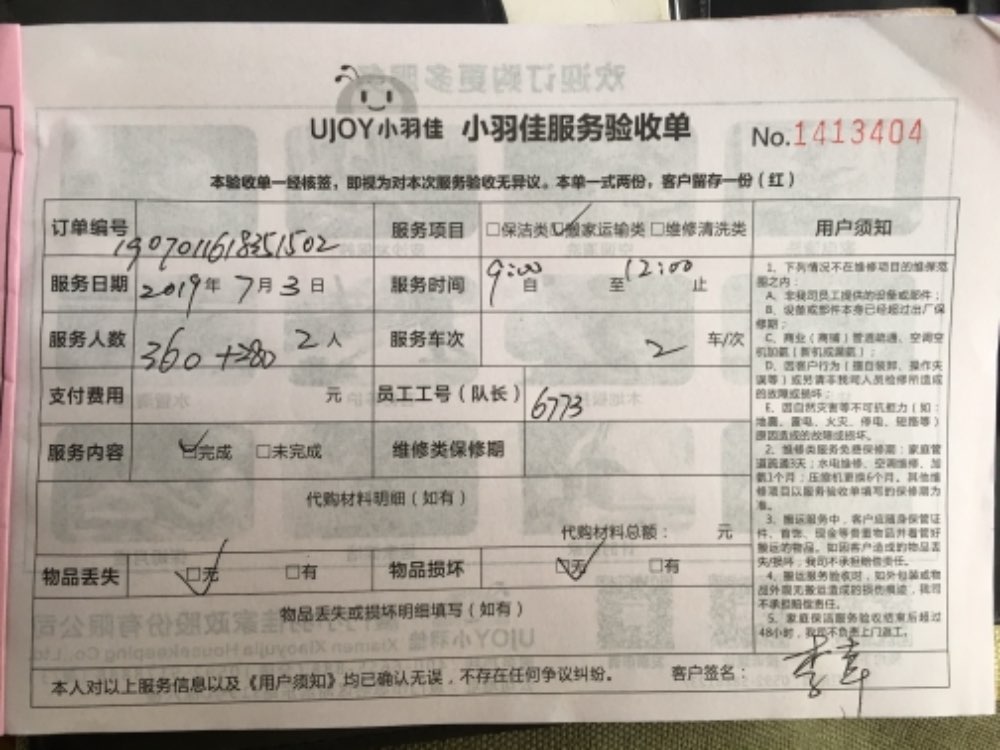 UJOY小羽佳 小羽佳服务验收单
No.1413404
本验收单一经核签，即视为对本次服务验收无异议。本单一式两份，客户留存一份（红）
订单编号 1907011618351502 服务项目 □保洁类 ☑搬家运输类 □维修清洗类
服务日期 2019年7月3日 服务时间 9:00自 至12:00止
服务人数 2人 服务车次 2 车/次
360+280
支付费用 元 员工工号（队长） 6773
服务内容 ☑完成 □未完成 维修类保修期
代购材料明细（如有）
代购材料总额： 元
物品丢失 ☑无 □有 物品损坏 ☑无 □有
物品丢失或损坏明细填写（如有）
本人对以上服务信息以及《用户须知》均已确认无误，不存在任何争议纠纷。 客户签名：
用户须知
1、下列情况不在维修项目的维保范
围之内：
A、非我司员工提供的设备或部件；
B、设备或部件本身已经超过出厂保
修期；
C、商业（商铺）管道疏通、空调空
机加氨（新机或漏氨）；
D、因客户行为（擅自装卸、操作失
误等）或另请非我司人员检修所造成
的故障或损坏；
E、因自然灾害等不可抗拒力（如：
地震、雷电、火灾、停电、短路等）
原因造成的故障或损坏。
2、维修类服务免费保修期：家庭管
道疏通3天；水电维修、空调维修、加
氨1个月；压缩机更换6个月。其他维
修项目以服务验收单填写的保修期为
准。
3、搬运服务中，客户应随身保管证
件、首饰、现金等贵重物品并看管好
搬运的物品。如因客户造成的物品丢
失/损坏，我司不承担赔偿责任。
4、搬运服务验收时，如外包装或物
品外观无搬运造成的损伤痕迹，我司
不承担赔偿责任。
5、家庭保洁服务验收结束后超过
48小时，我司不负责上门返工。